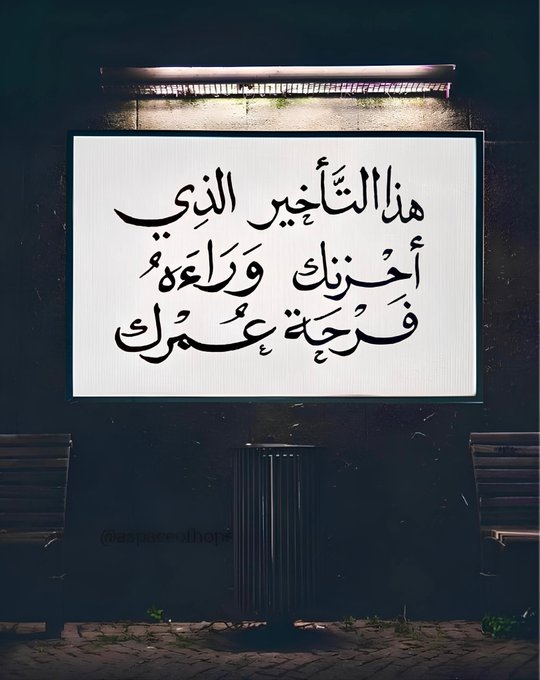 هذا التَّأخير الذِي
أحْزنك وَرَاءَهُ
فَرْحَة عُمْرك
@aspaceofhope